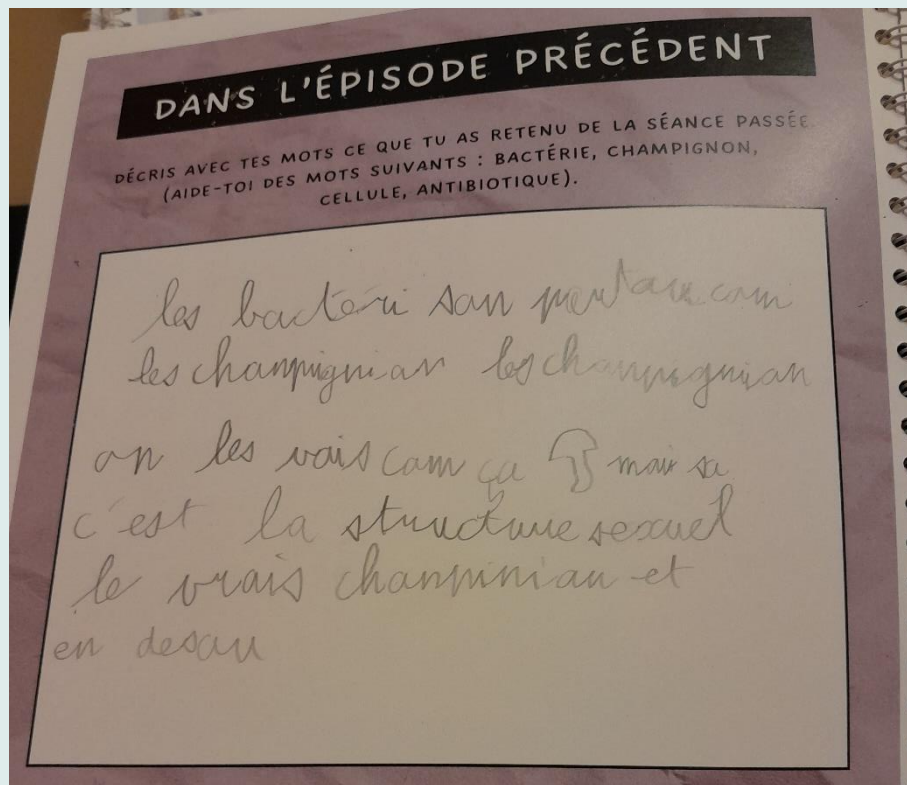 DANS L'ÉPISODE PRÉCÉDENT
DÉCRIS AVEC TES MOTS CE QUE TU AS RETENU DE LA SÉANCE PASSÉE.
(AIDE-TOI DES MOTS SUIVANTS : BACTÉRIE, CHAMPIGNON,
CELLULE, ANTIBIOTIQUE).
les bactéri son partou com
les chanpignion les chanpignion
on les vois com ça mais sa
c'est la structure sexuel
le vrais chanpinion et
en desou